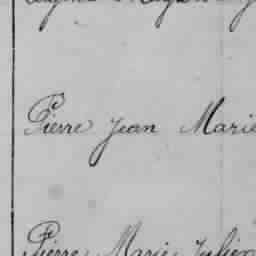 Pierre Jean Marie
Pierre Marie Julien